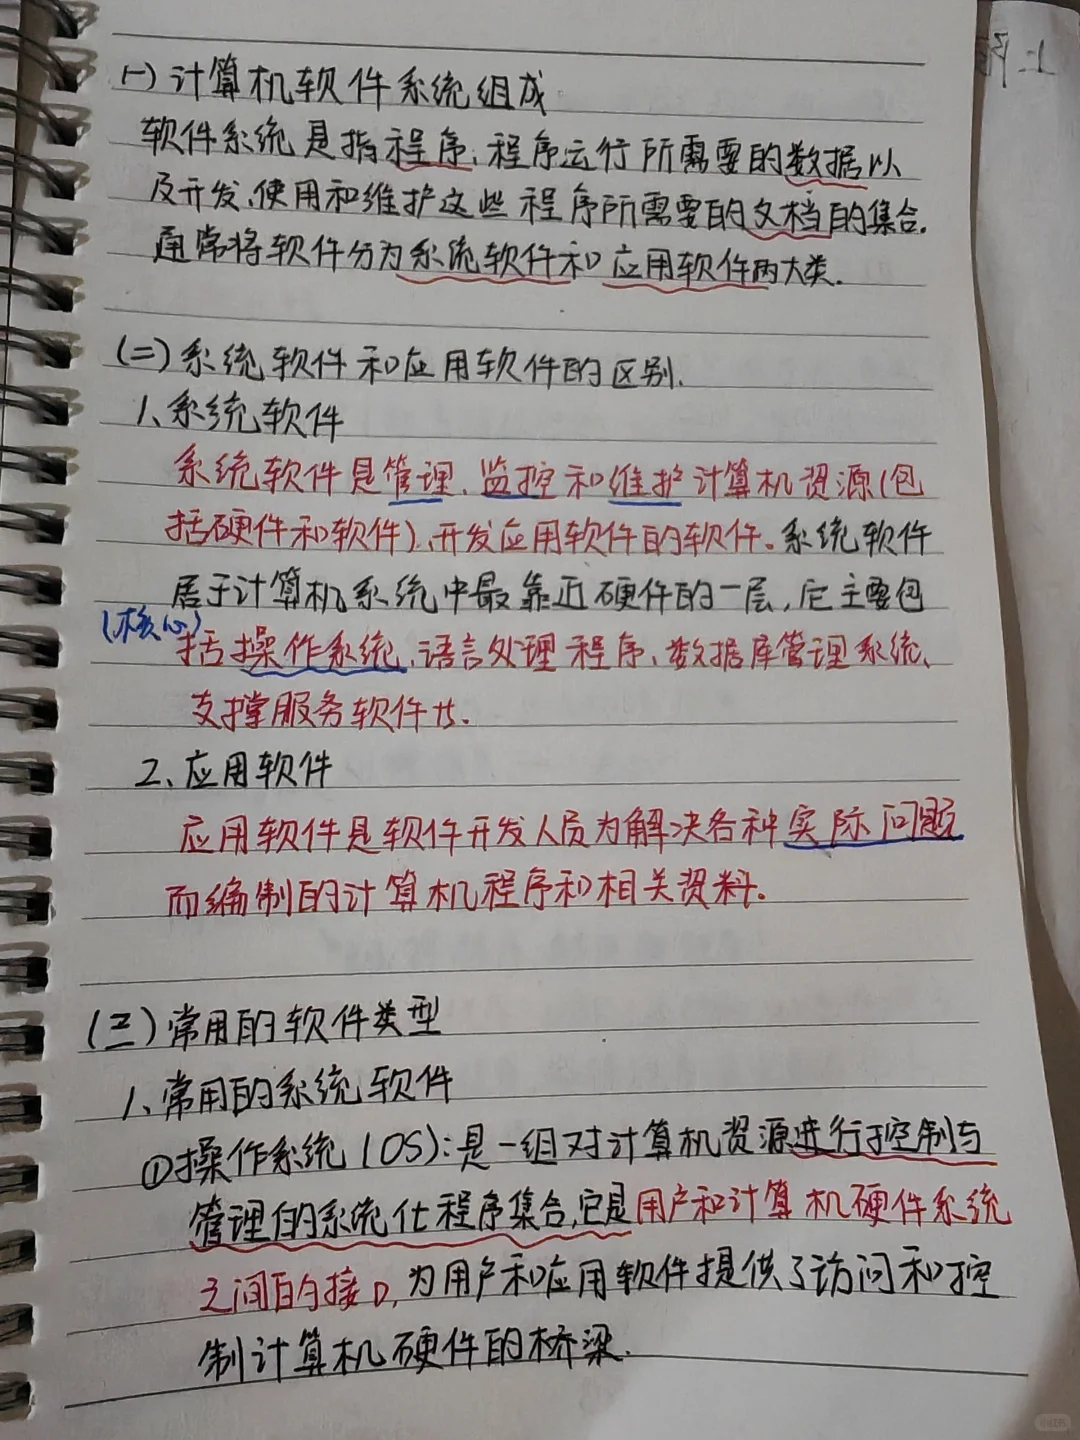 (一)计算机软件系统组成
软件系统是指程序、程序运行所需要的数据以
及开发、使用和维护这些程序所需要的文档的集合.
通常将软件分为系统软件和应用软件两大类.
(二)系统软件和应用软件的区别.
1、系统软件
系统软件是管理、监控和维护计算机资源(包
括硬件和软件)、开发应用软件的软件。系统软件
居于计算机系统中最靠近硬件的一层,它主要包
(核心)
括操作系统、语言处理程序、数据库管理系统、
支撑服务软件廿.
2、应用软件
应用软件是软件开发人员为解决各种实际问题
而编制的计算机程序和相关资料.
(三)常用的软件类型
1、常用的系统软件
①操作系统(OS):是一组对计算机资源进行控制与
管理的系统化程序集合,它是用户和计算机硬件系统
之间的接口,为用户和应用软件提供了访问和控
制计算机硬件的桥梁.
小红书